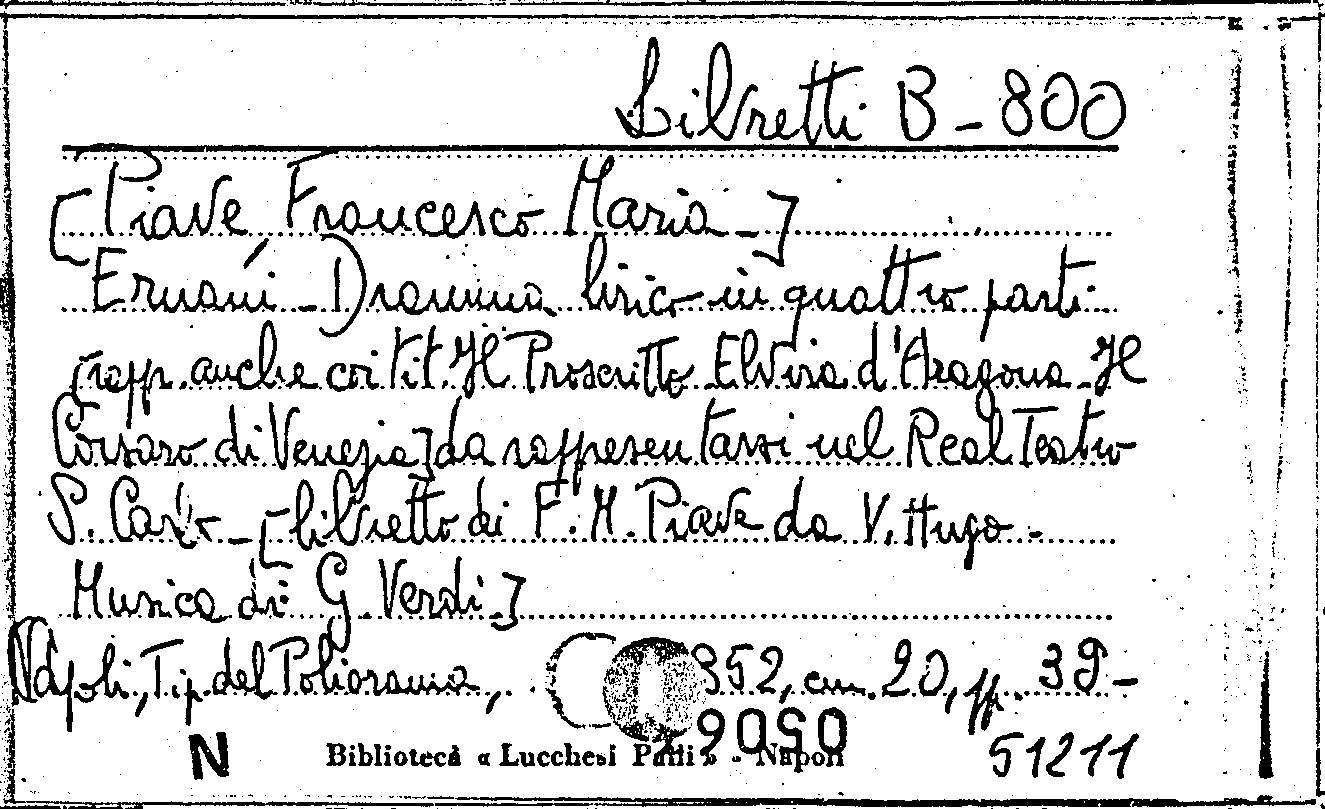 Libretti B - 800
[Piave, Francesco Maria -]
Ernani - Dramma lirico in quattro parti
[rapp. anche coi tit. Il Proscritto - Elvira d'Aragona - Il
Corsaro di Venezia] da rappresentarsi nel Real Teatro
S. Carlo - [libretto di F. M. Piave da V. Hugo -
Musica di G. Verdi]
Napoli, Tip. del Poliorama, 852, cm. 20, pp. 39 -
N Biblioteca « Lucchesi Palli » - Napoli 51211